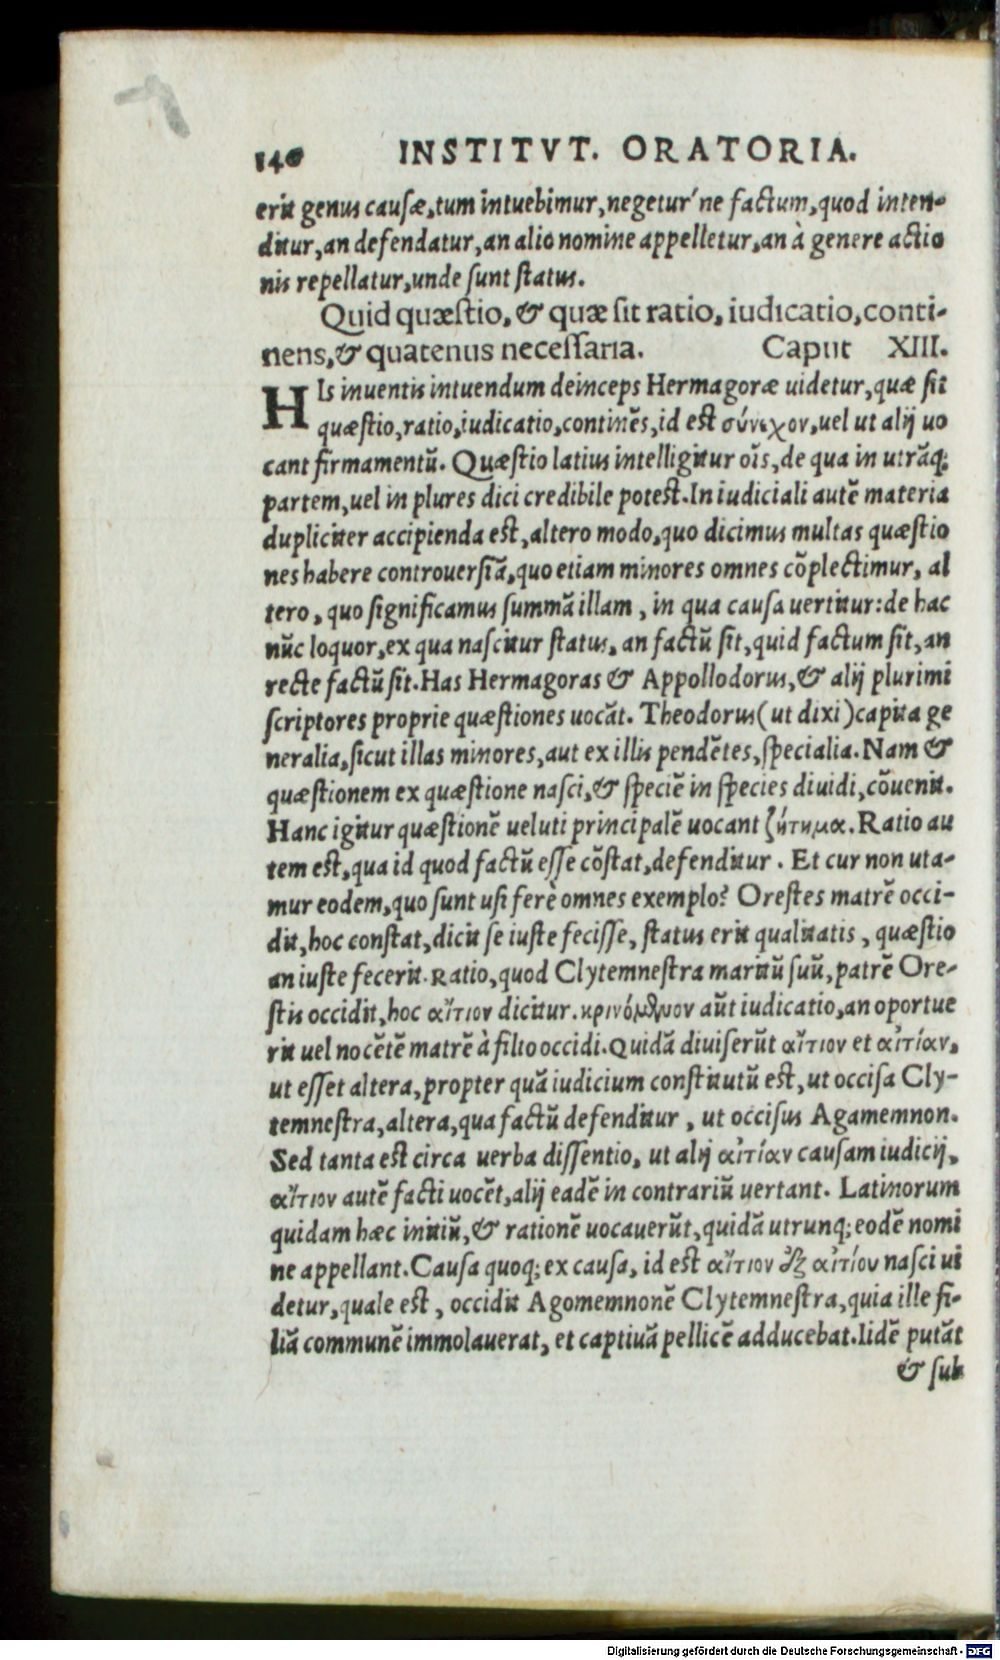 140 INSTITVT. ORATORIA.
erit genus causæ, tum intuebimur, negetur'ne factum, quod inten-
ditur, an defendatur, an alio nomine appelletur, an à genere actio
nis repellatur, unde sunt status.
Quid quæstio, & quæ sit ratio, iudicatio, conti-
nens, & quatenus necessaria. Caput XIII.
HIs inuentis intuendum deinceps Hermagoræ uidetur, quæ sit
quæstio, ratio, iudicatio, continẽs, id est σύνεχον, uel ut alij uo
cant firmamentũ. Quæstio latius intelligitur oĩs, de qua in utrãq;
partem, uel in plures dici credibile potest. In iudiciali autẽ materia
dupliciter accipienda est, altero modo, quo dicimus multas quæstio
nes habere controuersiã, quo etiam minores omnes cõplectimur, al
tero, quo significamus summã illam, in qua causa uertitur: de hac
nũc loquor, ex qua nascitur status, an factũ sit, quid factum sit, an
recte factũ sit. Has Hermagoras & Appollodorus, & alij plurimi
scriptores proprie quæstiones uocãt. Theodorus (ut dixi) capita ge
neralia, sicut illas minores, aut ex illis pendẽtes, specialia. Nam &
quæstionem ex quæstione nasci, & speciẽ in species diuidi, cõuenit.
Hanc igitur quæstionẽ ueluti principalẽ uocant ζήτημα. Ratio au
tem est, qua id quod factũ esse cõstat, defenditur. Et cur non uta-
mur eodem, quo sunt usi ferè omnes exemplo? Orestes matrẽ occi-
dit, hoc constat, dicit se iuste fecisse, status erit qualitatis, quæstio
an iuste fecerit. Ratio, quod Clytemnestra maritũ suũ, patrẽ Ore-
stis occidit, hoc αἴτιον dicitur. κρινόμενον aũt iudicatio, an oportue
rit uel nocẽtẽ matrẽ à filio occidi. Quidã diuiserũt αἴτιον et αἰτίαν,
ut esset altera, propter quã iudicium constitutũ est, ut occisa Cly-
temnestra, altera, qua factũ defenditur, ut occisus Agamemnon.
Sed tanta est circa uerba dissentio, ut alij αἰτίαν causam iudicij,
αἴτιον autẽ facti uocẽt, alij eadẽ in contrariũ uertant. Latinorum
quidam hæc initiũ, & rationẽ uocauerũt, quidã utrunq; eodẽ nomi
ne appellant. Causa quoq; ex causa, id est αἴτιον ἐξ αἰτίου nasci ui
detur, quale est, occidit Agomemnonẽ Clytemnestra, quia ille fi-
liã communẽ immolauerat, et captiuã pellicẽ adducebat. Iidẽ putãt
& sub
Digitalisierung gefördert durch die Deutsche Forschungsgemeinschaft - DFG